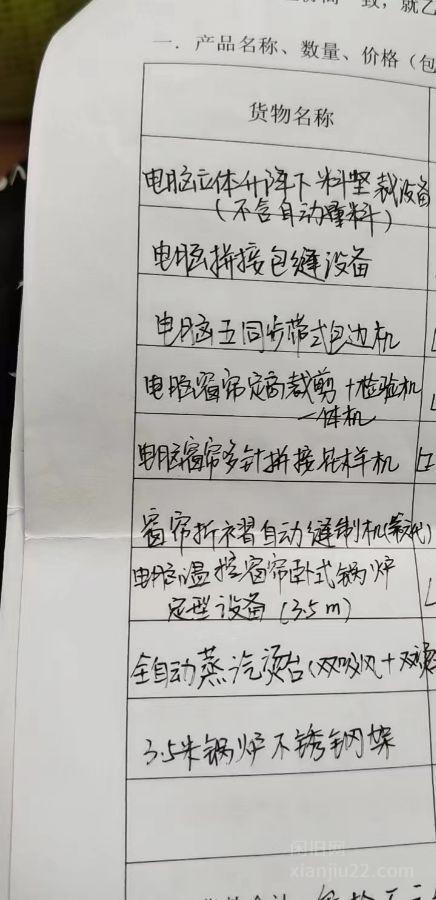 致，就乙
一．产品名称、数量、价格（包
货物名称
电脑立体升降下料竖裁设备
（不含自动叠料）
电脑拼接包缝设备
电脑五同步带式包边机
电脑窗帘定高裁剪+检验机
一体机
电脑窗帘多针拼接花样机
窗帘折褶自动缝制机
电脑温控窗帘卧式锅炉
定型设备（3.5m）
全自动蒸汽烫台（双吸风+双烫
3.5米锅炉不锈钢架
闲旧网
xianjiu22.com